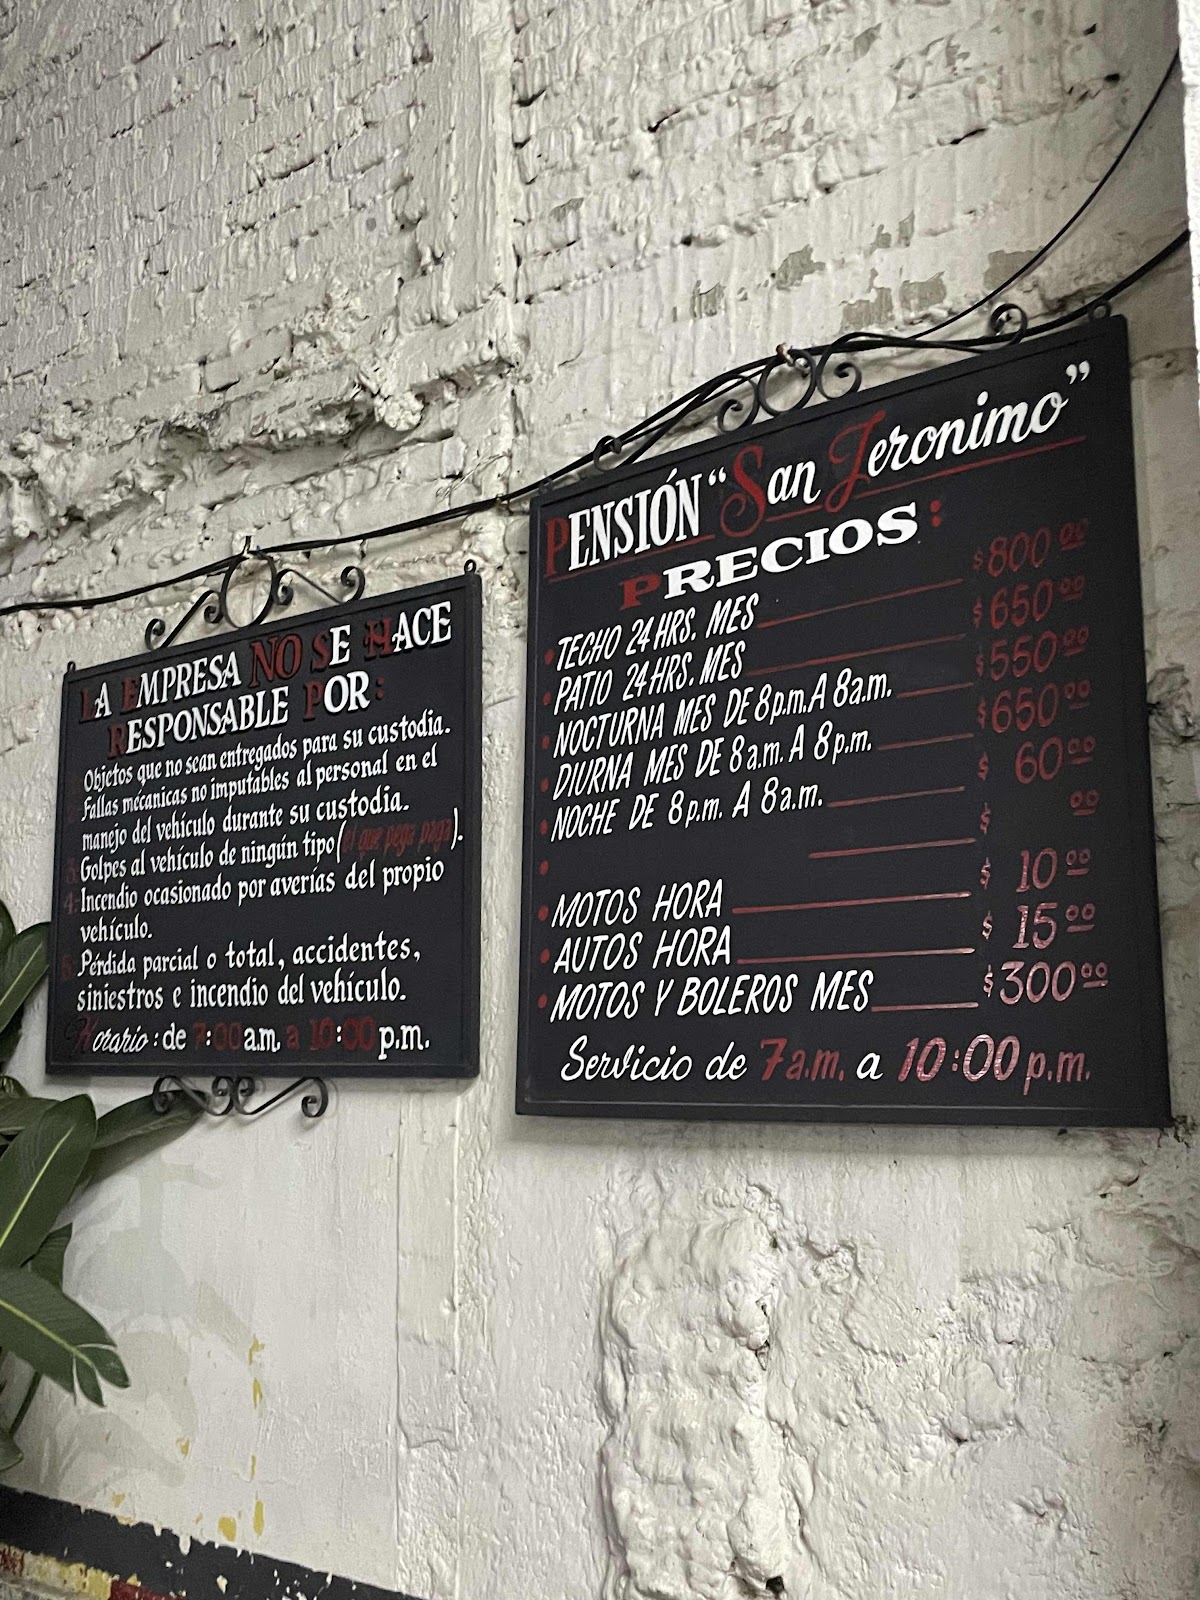 LA EMPRESA NO SE HACE
RESPONSABLE POR:
Objetos que no sean entregados para su custodia.
Fallas mécanicas no imputables al personal en el
manejo del vehículo durante su custodia.
3. Golpes al vehículo de ningún tipo (el que pega paga).
4. Incendio ocasionado por averías del propio
vehículo.
5. Pérdida parcial o total, accidentes,
siniestros e incendio del vehículo.
Horario: de 7:00 a.m. a 10:00 p.m.
PENSIÓN “San Jeronimo”
PRECIOS:
• TECHO 24 HRS. MES $800.00
• PATIO 24 HRS. MES $650.00
• NOCTURNA MES DE 8 p.m. A 8 a.m. $550.00
• DIURNA MES DE 8 a.m. A 8 p.m. $650.00
• NOCHE DE 8 p.m. A 8 a.m. $ 60.00
• $ 00
• MOTOS HORA $ 10.00
• AUTOS HORA $ 15.00
• MOTOS Y BOLEROS MES $300.00
Servicio de 7 a.m. a 10:00 p.m.